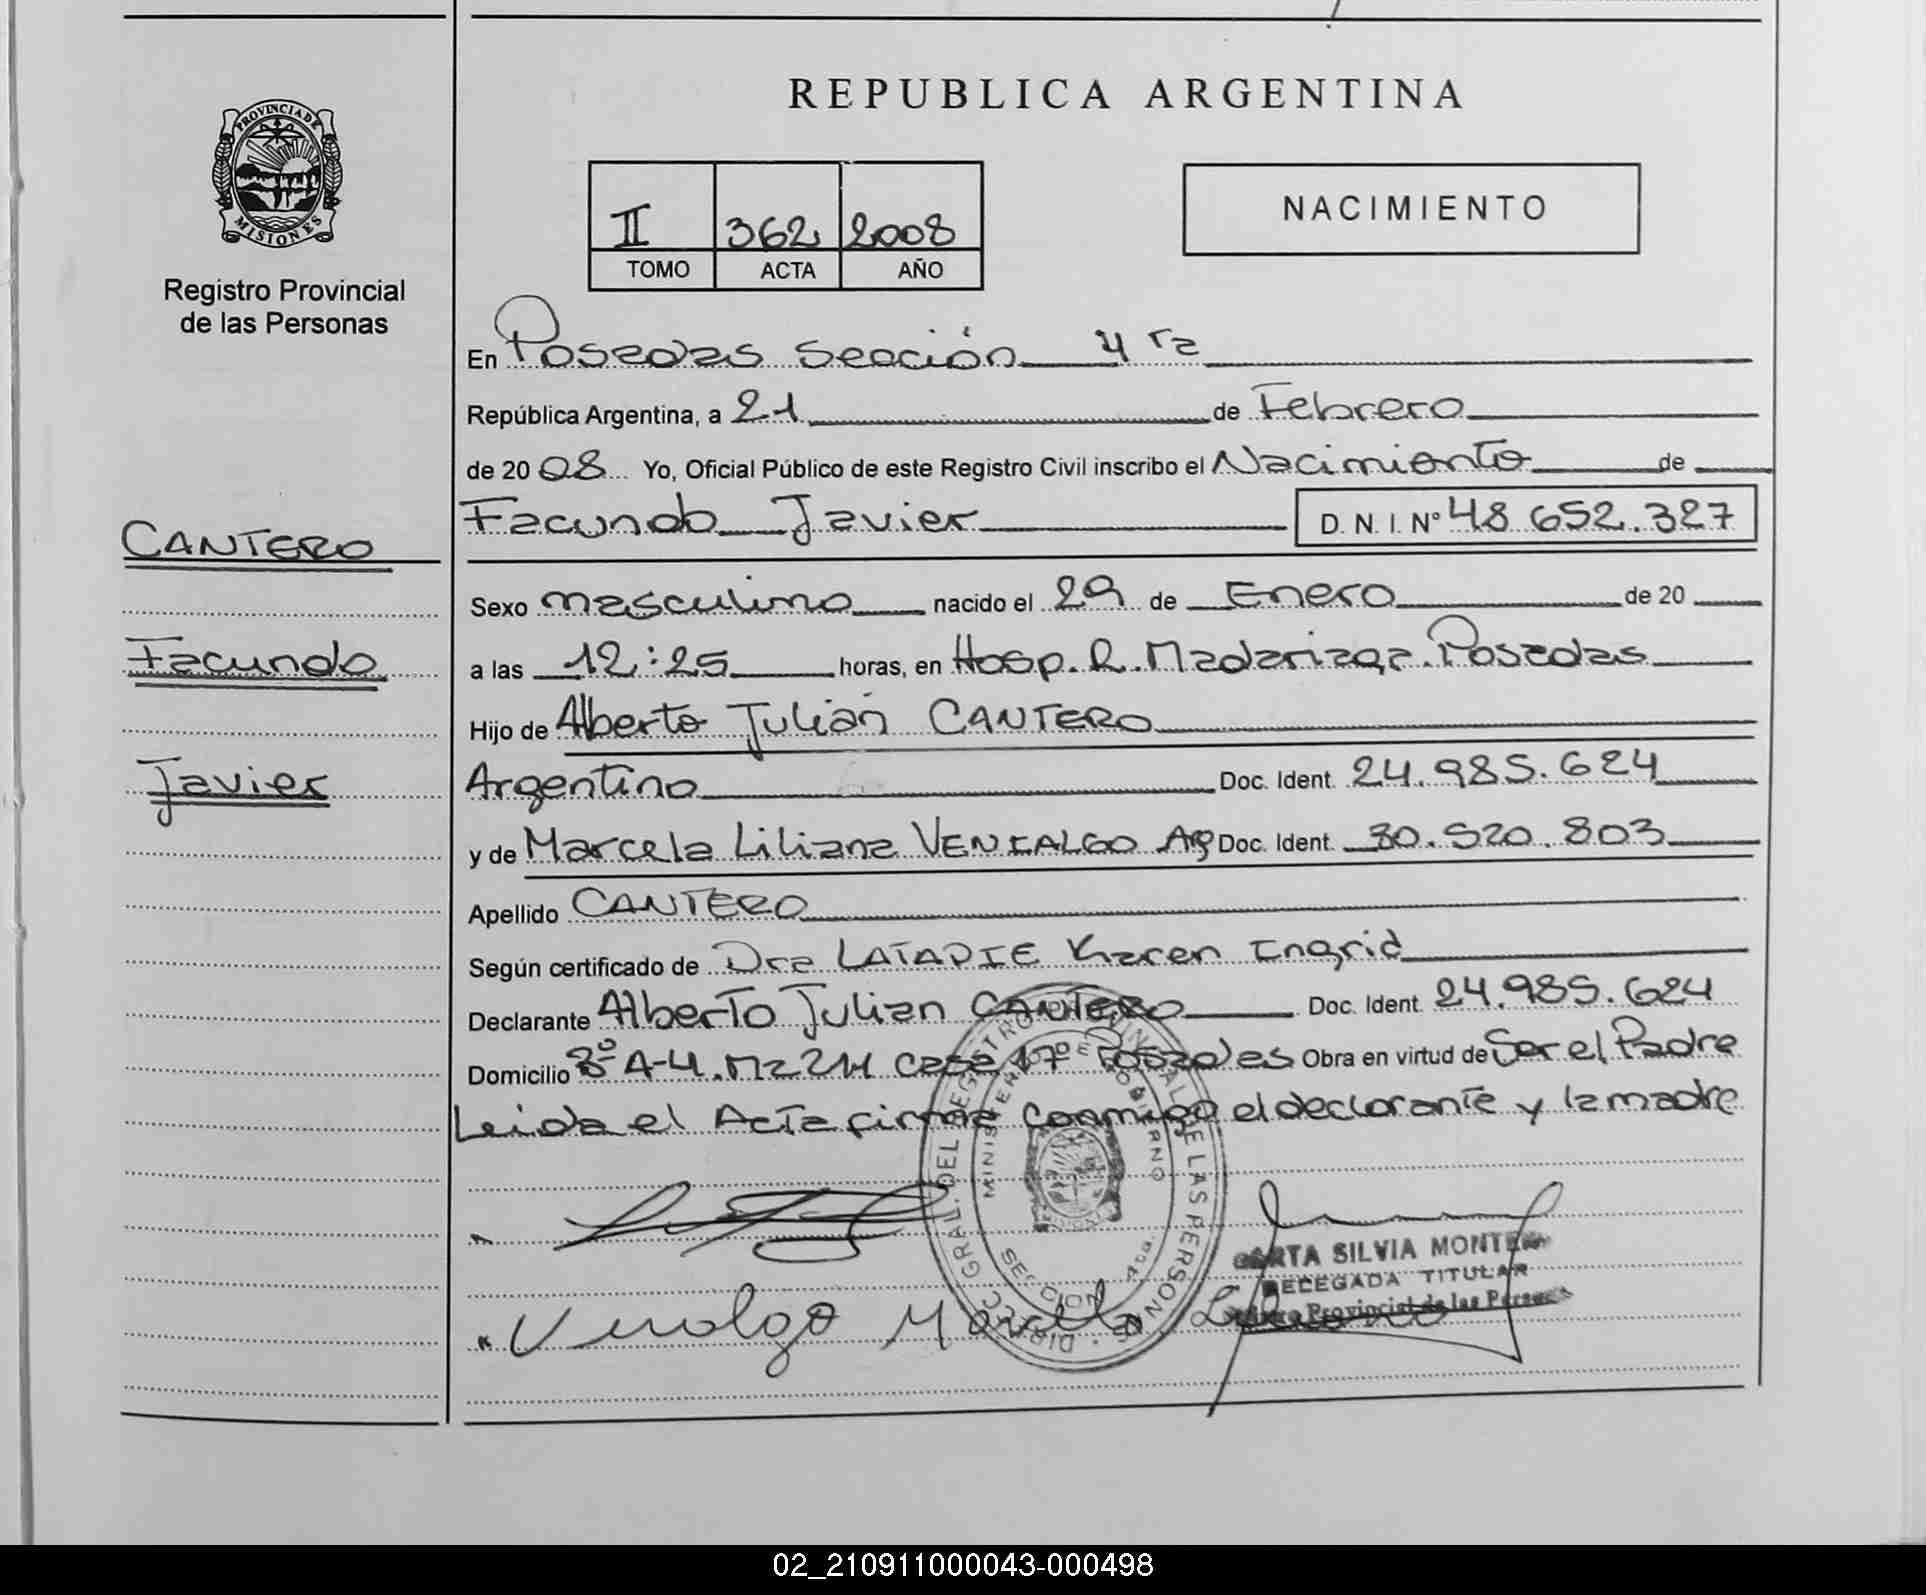 REPUBLICA ARGENTINA
PROVINCIA DE
MISIONES
Registro Provincial
de las Personas
II 362 2008
TOMO ACTA AÑO
NACIMIENTO
En Posadas Sección 4ta
República Argentina, a 21 de Febrero
de 2008 Yo, Oficial Público de este Registro Civil inscribo el Nacimiento de
Facundo Javier D. N. I. Nº 48.652.327
CANTERO
Facundo
Javier
Sexo masculino nacido el 29 de Enero de 20
a las 12:25 horas, en Hosp. R. Madariaga. Posadas
Hijo de Alberto Julián CANTERO
Argentino Doc. Ident. 24.985.624
y de Marcela Liliana VENIALGO Arg Doc. Ident. 30.520.803
Apellido CANTERO
Según certificado de Dra LATADIE Karen Ingrid
Declarante Alberto Julian CANTERO Doc. Ident. 24.985.624
Domicilio Bº A-4. Mz 214 Casa 17 Posadas Obra en virtud de Ser el Padre
Leida el Acta firma conmigo el declarante y la madre
DIRECC GRAL. DEL REGISTRO PROVINCIAL DE LAS PERSONAS
MINISTERIO DE GOBIERNO
SECCION 4ta.
SILVIA MONTE
DELEGADA TITULAR
Provincial de las Personas
Venialgo Marcela
02_210911000043-000498